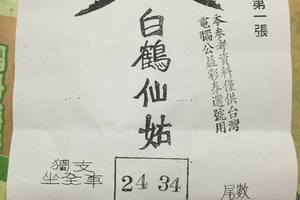 第一張
本參考資料僅供台灣
電腦公益彩券選號用
白鶴仙姑
獨支
坐全車
24 34
尾數